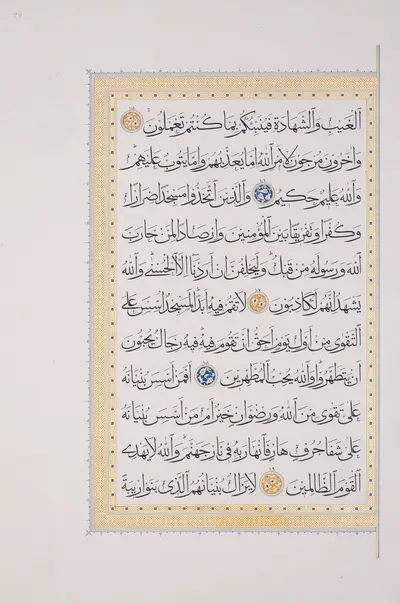 الغيب والشهادة فينبئكم بما كنتم تعملون
وآخرون مرجون لأمر الله إما يعذبهم وإما يتوب عليهم
والله عليم حكيم والذين اتخذوا مسجدا ضرارا
وكفرا وتفريقا بين المؤمنين وإرصادا لمن حارب
الله ورسوله من قبل وليحلفن إن أردنا إلا الحسنى والله
يشهد إنهم لكاذبون لا تقم فيه أبدا لمسجد أسس على
التقوى من أول يوم أحق أن تقوم فيه فيه رجال يحبون
أن يتطهروا والله يحب المطهرين أفمن أسس بنيانه
على تقوى من الله ورضوان خير أم من أسس بنيانه
على شفا جرف هار فانهار به في نار جهنم والله لا يهدي
القوم الظالمين لا يزال بنيانهم الذي بنوا ريبة